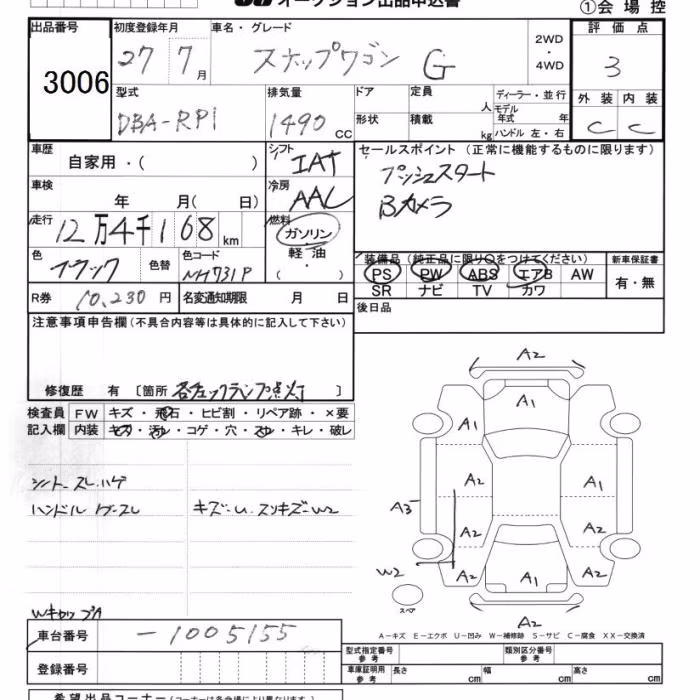 オークション出品申込書 ①会場控
出品番号 初度登録年月 車名・グレード 評価点
3006 27 7月 スナップワゴン G 2WD・4WD 3
型式 排気量 ドア 定員 人 ディーラー・並行 外装 内装
DBA-RP1 1490 CC 形状 積載 kg モデル年式 年 ハンドル 左・右 C C
車歴 自家用・( ) シフト IAT セールスポイント(正常に機能するものに限ります)
車検 年 月( 日) 冷房 AAC プッシュスタート
走行 12万4千168km 燃料 ガソリン Bカメラ
軽油
( )
色 ブラック 色替 色コード NH731P 装備品(純正品に限り○をつけてください) 新車保証書
PS PW ABS エアB AW 有・無
SR ナビ TV カワ
R券 10,230円 名変通知期限 月 日 後日品
注意事項申告欄(不具合内容等は具体的に記入して下さい)
修復歴 有 〔箇所 各チェックランプ点灯 〕
検査員 FW キズ・飛石・ヒビ割・リペア跡・×要
記入欄 内装 キズ・汚れ・コゲ・穴・スレ・キレ・破レ
シートスレ.ハゲ
ハンドル
キズ-U.スリキズ-W2
Wキャップ
A2
A1
A1
A2 A1
A3
A2 A2
W2 A2 A1 A2
スペア
A2
A-キズ E-エクボ U-凹み W-補修跡 S-サビ C-腐食 XX-交換済
車台番号 -1005155
型式指定番号 参考 類別区分番号 参考
登録番号 車庫証明用 参考 長さ cm 幅 cm 高さ cm
希望出品コーナー(コーナーは各会場により異なります。)